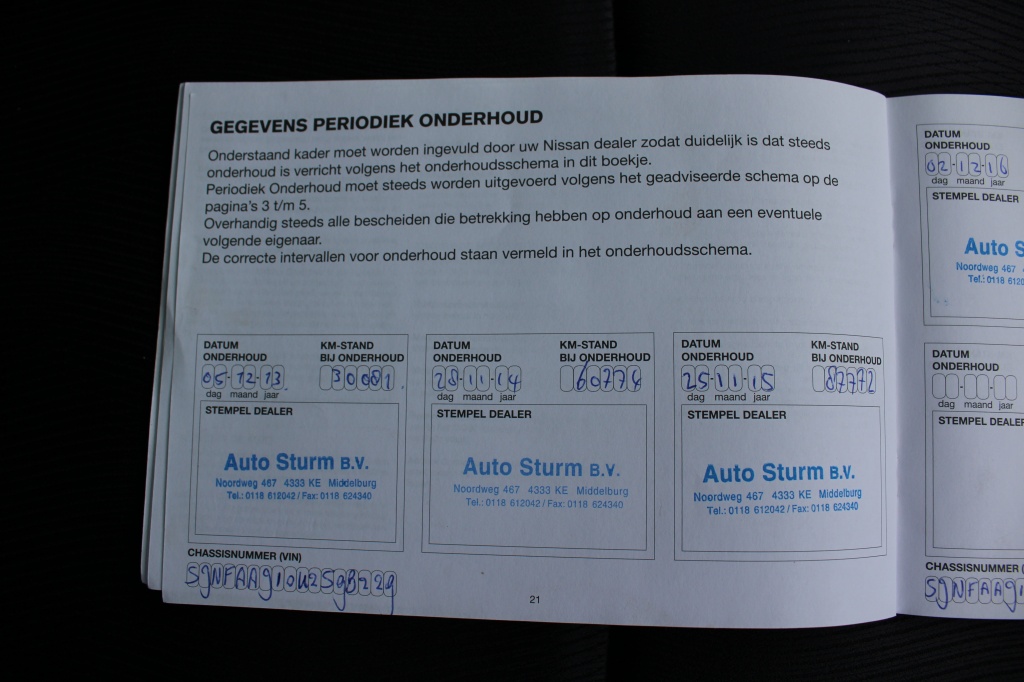 GEGEVENS PERIODIEK ONDERHOUD
Onderstaand kader moet worden ingevuld door uw Nissan dealer zodat duidelijk is dat steeds
onderhoud is verricht volgens het onderhoudsschema in dit boekje.
Periodiek Onderhoud moet steeds worden uitgevoerd volgens het geadviseerde schema op de
pagina's 3 t/m 5.
Overhandig steeds alle bescheiden die betrekking hebben op onderhoud aan een eventuele
volgende eigenaar.
De correcte intervallen voor onderhoud staan vermeld in het onderhoudsschema.
DATUM
ONDERHOUD
05-12-13
dag maand jaar
KM-STAND
BIJ ONDERHOUD
30081
STEMPEL DEALER
Auto Sturm B.V.
Noordweg 467 4333 KE Middelburg
Tel.: 0118 612042 / Fax: 0118 624340
DATUM
ONDERHOUD
28-11-14
dag maand jaar
KM-STAND
BIJ ONDERHOUD
60774
STEMPEL DEALER
Auto Sturm B.V.
Noordweg 467 4333 KE Middelburg
Tel.: 0118 612042 / Fax: 0118 624340
DATUM
ONDERHOUD
25-11-15
dag maand jaar
KM-STAND
BIJ ONDERHOUD
87772
STEMPEL DEALER
Auto Sturm B.V.
Noordweg 467 4333 KE Middelburg
Tel.: 0118 612042 / Fax: 0118 624340
CHASSISNUMMER (VIN)
21
DATUM
ONDERHOUD
02-12-16
dag maand jaar
STEMPEL DEALER
Auto S
Noordweg 467
Tel.: 0118 612
DATUM
ONDERHOUD
dag maand jaar
STEMPEL DEALER
CHASSISNUMMER (